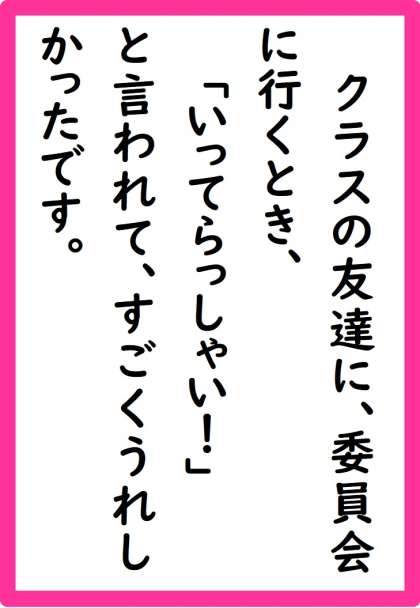 クラスの友達に、委員会
に行くとき、
「いってらっしゃい！」
と言われて、すごくうれし
かったです。